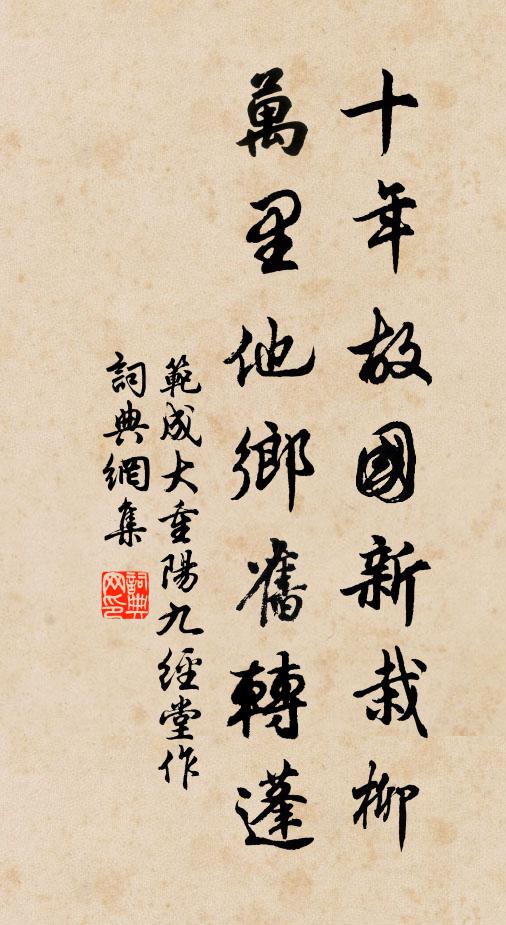 十年故國新栽柳
萬里他鄉舊轉蓬
範成大重陽九經堂作
詞典網集
詞典網印